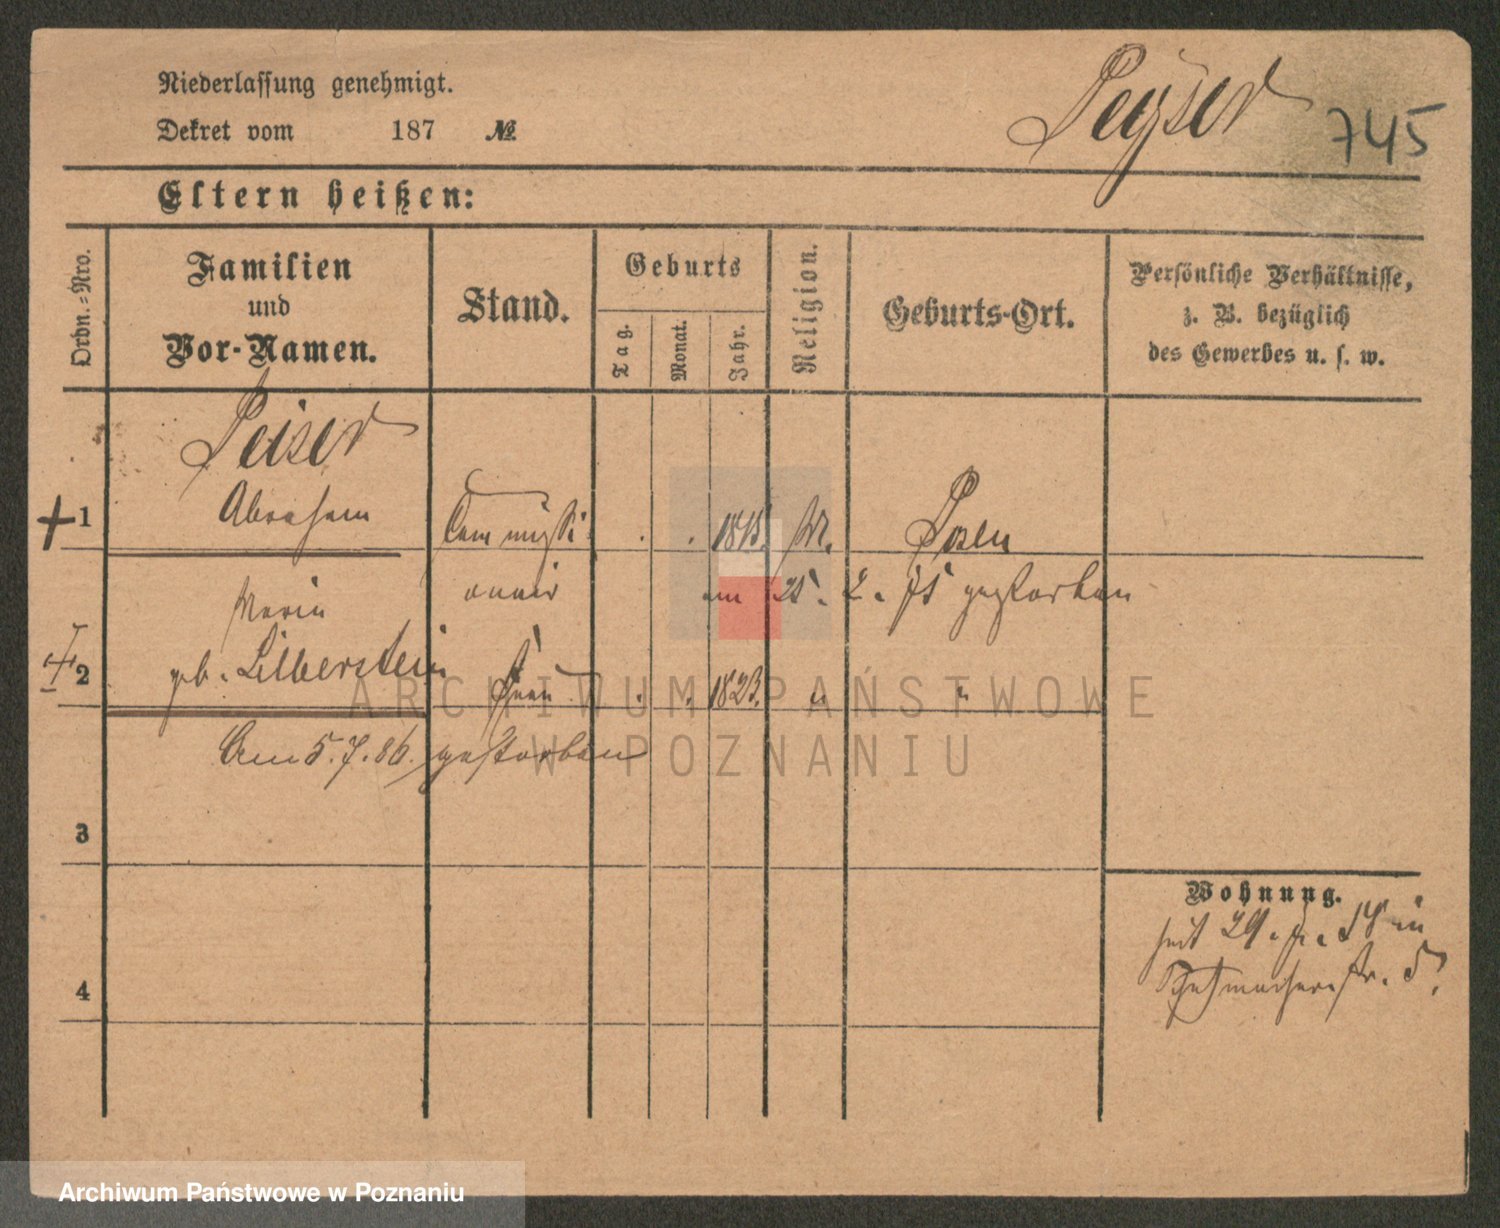 Niederlassung genehmigt.
Dekret vom 187 №
Peyser 745
Eltern heißen:
Ordn.=Nro.
Familien
und
Vor-Namen.
Stand.
Geburts
Tag.
Monat.
Jahr.
Religion.
Geburts-Ort.
Persönliche Verhältnisse,
z. B. bezüglich
des Gewerbes u. s. w.
Peiser
+ 1 Abraham Commissi . . M. Posen
onair am 25. 2. gestorben
Maria
+ 2 geb. Silberstein Frau . . 1823. " "
Am 5.7.86. gestorben
3
4
Wohnung.
seit 29. in
str. 5.
ARCHIWUM PAŃSTWOWE
W POZNANIU
Archiwum Państwowe w Poznaniu